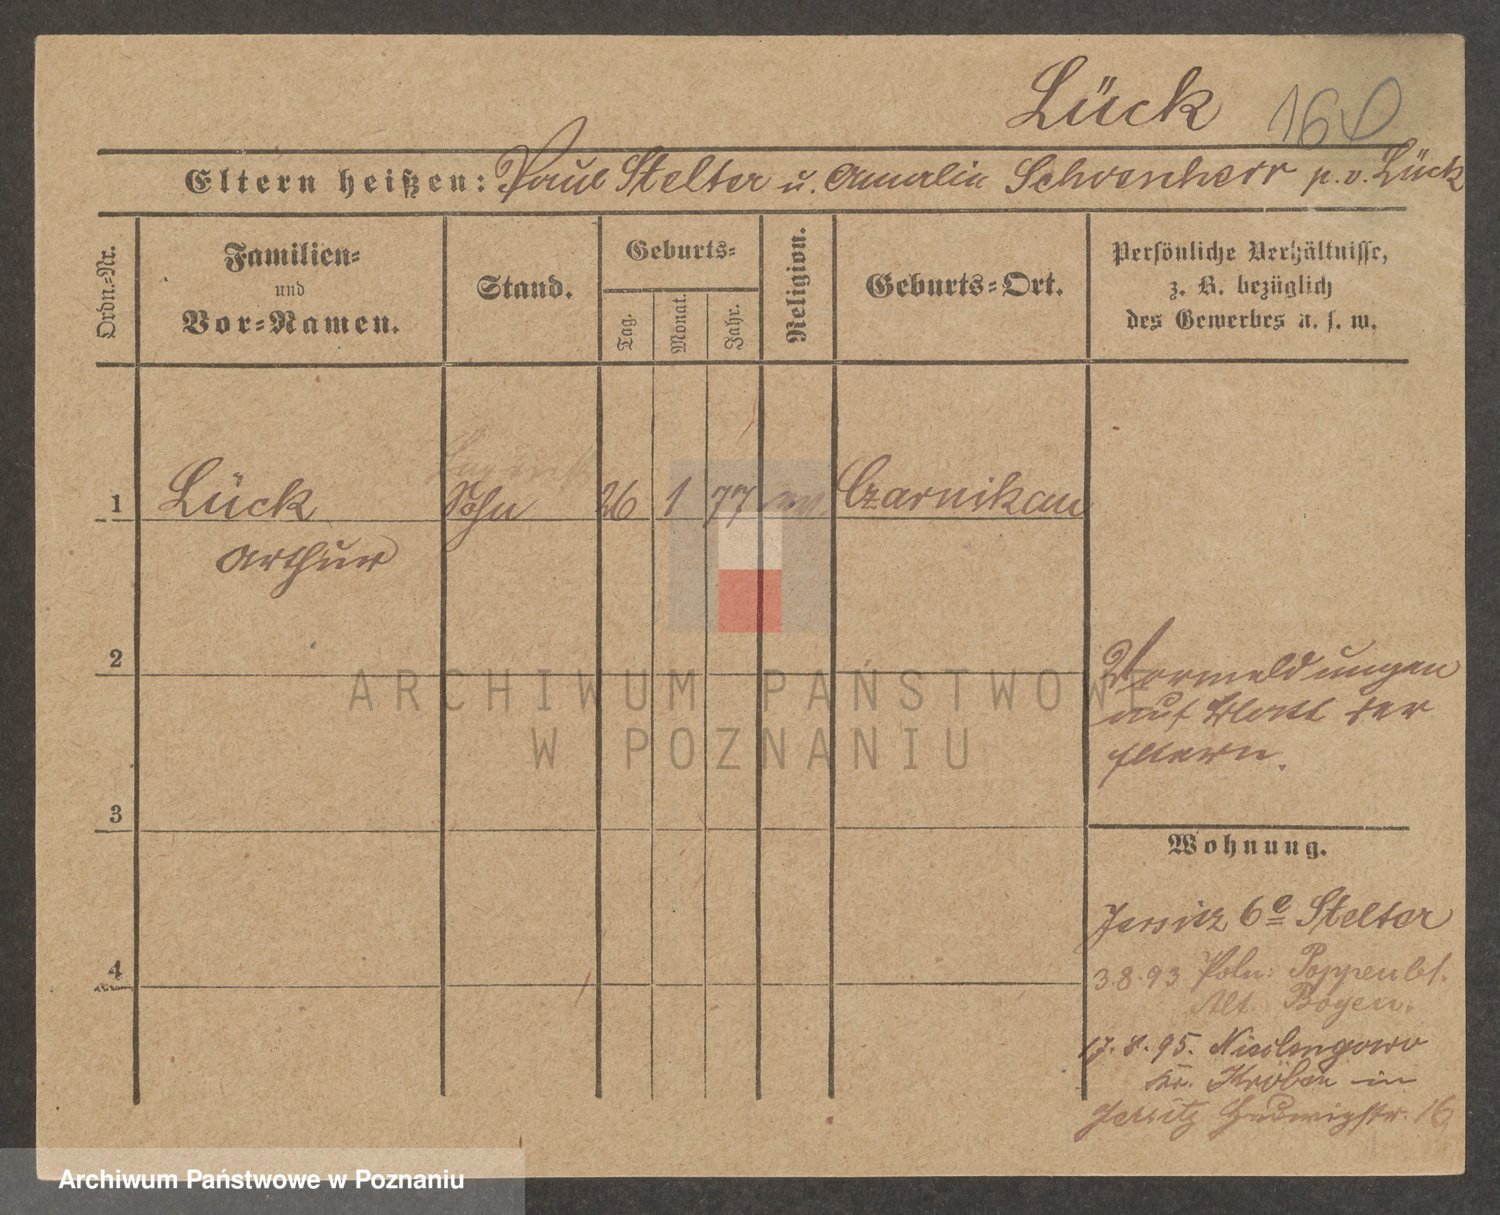 Lück 160
Eltern heißen: Paul Stelter u. Amalin Schoenherr p. v. Lück
Ordn.-Nr.
Familien-
und
Vor-Namen.
Stand.
Geburts-
Tag.
Monat.
Jahr.
Religion.
Geburts-Ort.
Persönliche Verhältnisse,
z. B. bezüglich
des Gewerbes u. s. w.
1 Lück Sohn 26 1 77 Czarnikau
Arthur
2
Vormeldungen
auf Blatt der
Eltern.
3
Wohnung.
Jersitz 6e Stelter
4
3.8.93 Poln:
Alt. Boyen.
17.8.95.
Kr. Kröben in
Jersitz Hedwigstr. 16
ARCHIWUM PAŃSTWOWE
W POZNANIU
Archiwum Państwowe w Poznaniu